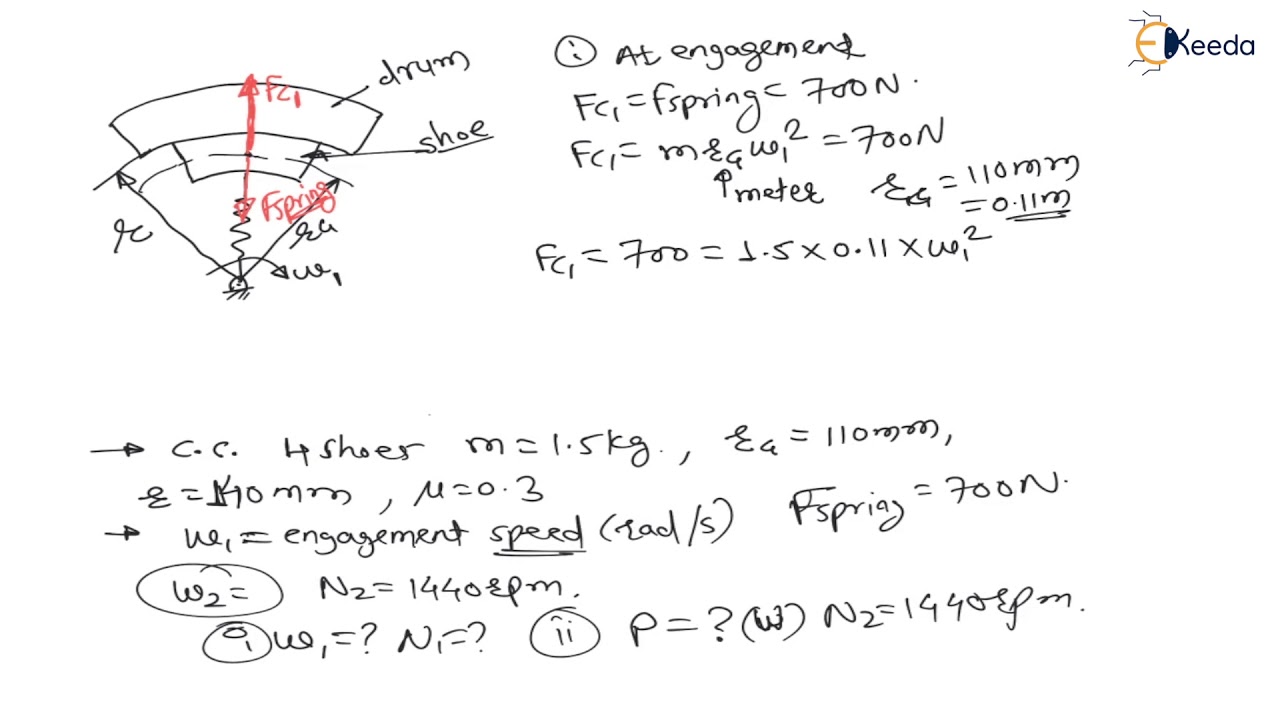 EKeeda
drum
Fc₁
shoe
Fspring
rc
rG
ω₁
① At engagement
Fc₁ = Fspring = 700N.
Fc₁ = m rG ω₁² = 700N
↑meter rG = 110mm
= 0.11m
Fc₁ = 700 = 1.5 × 0.11 × ω₁²
→ C.C. 4 shoes m = 1.5kg., rG = 110mm,
r = 140mm, μ = 0.3 Fspring = 700N.
→ ω₁ = engagement speed (rad/s)
ω₂ = N₂ = 1440rpm.
ⓘ ω₁ = ? N₁ = ? ⓘⓘ P = ? (W) N₂ = 1440rpm.